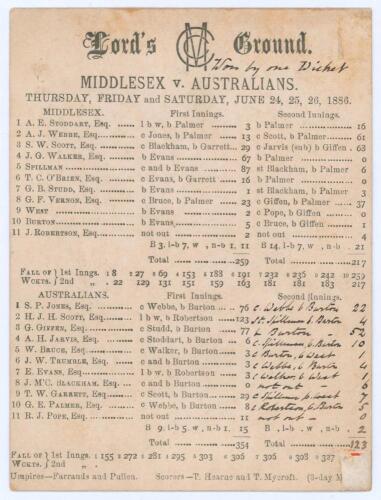 Lord's MCC Ground.
Won by one Wicket
MIDDLESEX v. AUSTRALIANS.
THURSDAY, FRIDAY and SATURDAY, JUNE 24, 25, 26, 1886.
MIDDLESEX. First Innings. Second Innings.
1 A. E. STODDART, Esq. l b w, b Palmer 3 b Palmer 16
2 A. J. WEBBE, Esq. c Jones, b Palmer 13 c Scott, b Palmer 61
3 S. W. SCOTT, Esq. c Blackham, b Garrett 29 c Jarvis (sub) b Giffen 63
4 J. G. WALKER, Esq. b Evans 67 b Palmer 67
5 SPILLMAN c and b Evans 87 st Blackham, b Palmer 6
6 T. C. O'BRIEN, Esq. c Evans, b Garrett 16 b Palmer 0
7 G. B. STUDD, Esq. b Evans 1 st Blackham, b Palmer 3
8 G. F. VERNON, Esq. c Bruce, b Palmer 23 c Giffen, b Palmer 37
9 WEST b Evans 2 c Pope, b Giffen 0
10 BURTON b Evans 5 c Bruce, b Giffen 1
11 J. ROBERTSON, Esq. not out 2 not out 4
B 3, l-b 7, w , n-b 1, 11 B 14, l-b 7, w , n-b 21
Total 259 Total 217
FALL OF 1st Inngs. 1 8 2 27 3 69 4 153 5 188 6 191 7 232 8 236 9 242 10 259
WCKTS. 2nd " 22 129 131 151 159 163 181 181 183 217
AUSTRALIANS. First Innings. Second Innings.
1 S. P. JONES, Esq. c Webbe, b Burton 76 c Webbe b Burton 22
2 H. J. H. SCOTT, Esq. l b w, b Robertson 123 St. Spillman b Burton
3 G. GIFFEN, Esq. c Studd, b Burton 77 b Burton 52
4 A. H. JARVIS, Esq. c Stoddart, b Burton 6 c Spillman b Burton 10
5 W. BRUCE, Esq. c Walker, b Burton b West 1
6 J. W. TRUMBLE, Esq. c and b Burton c Webbe, b Burton 4
7 E. EVANS, Esq. l b w, b Robertson b West 1
8 J. M'C. BLACKHAM, Esq. c and b Burton 0 not out 6
9 T. W. GARRETT, Esq. c Scott, b Burton 29 c Spillman b West 7
10 G. E. PALMER, Esq. c Webbe, b Burton 8 c Robertson, b Burton 5
11 R. J. POPE, Esq. not out 11 not out
B 9, l-b 5, w 1, n-b 15 B , l-b , w , n-b 2
Total 354 Total 123
FALL OF 1st Inngs. 1 155 2 272 3 281 4 295 5 303 6 306 7 306 8 308 9 327
WCKTS. 2nd "
Umpires—Farrands and Pullen. Scorers—T. Hearne and T. Mycroft. (3-day M